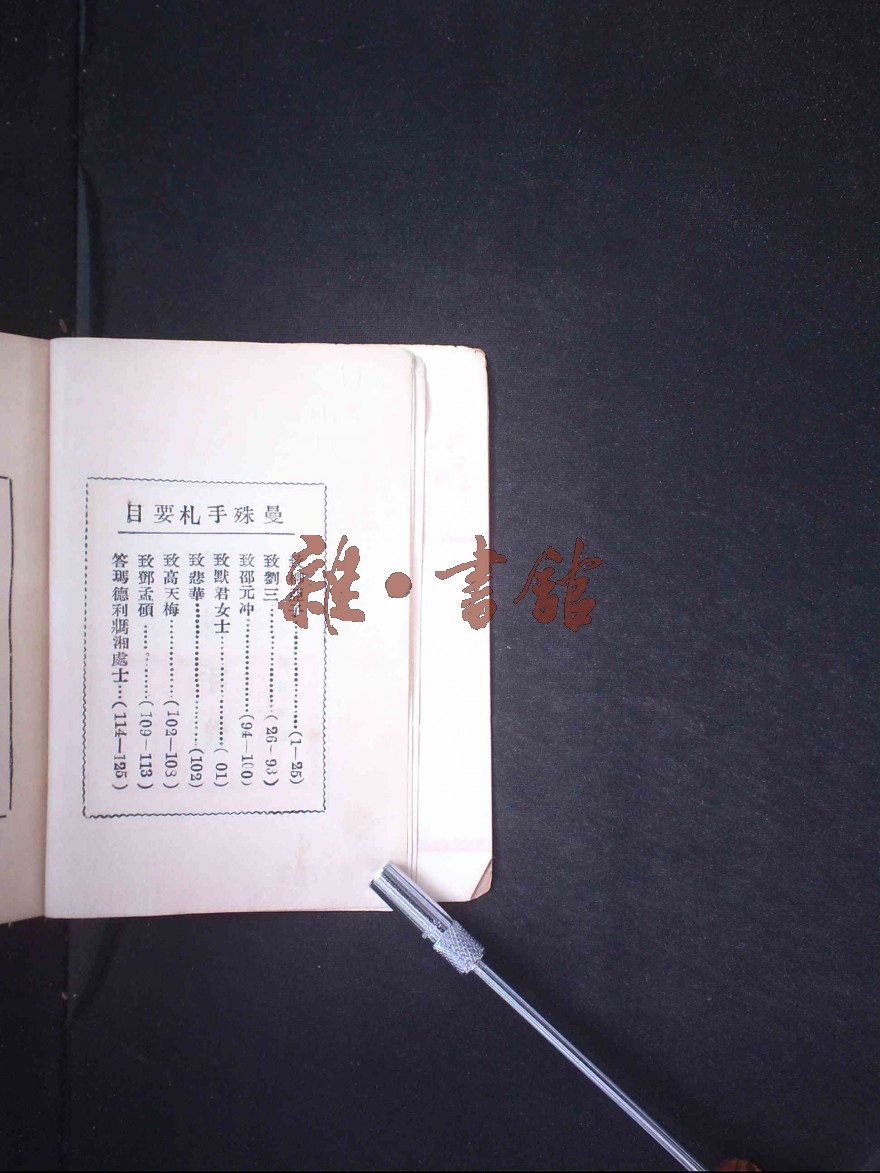 曼殊手札要目
致……(1—25)
致劉三……(26—93)
致邵元冲……(94—100)
致默君女士……( 01)
致悲華……(102)
致高天梅……(102—108)
致鄧孟碩……(109—113)
答瑪德利馮湘處士…(114—125)
雜·書館